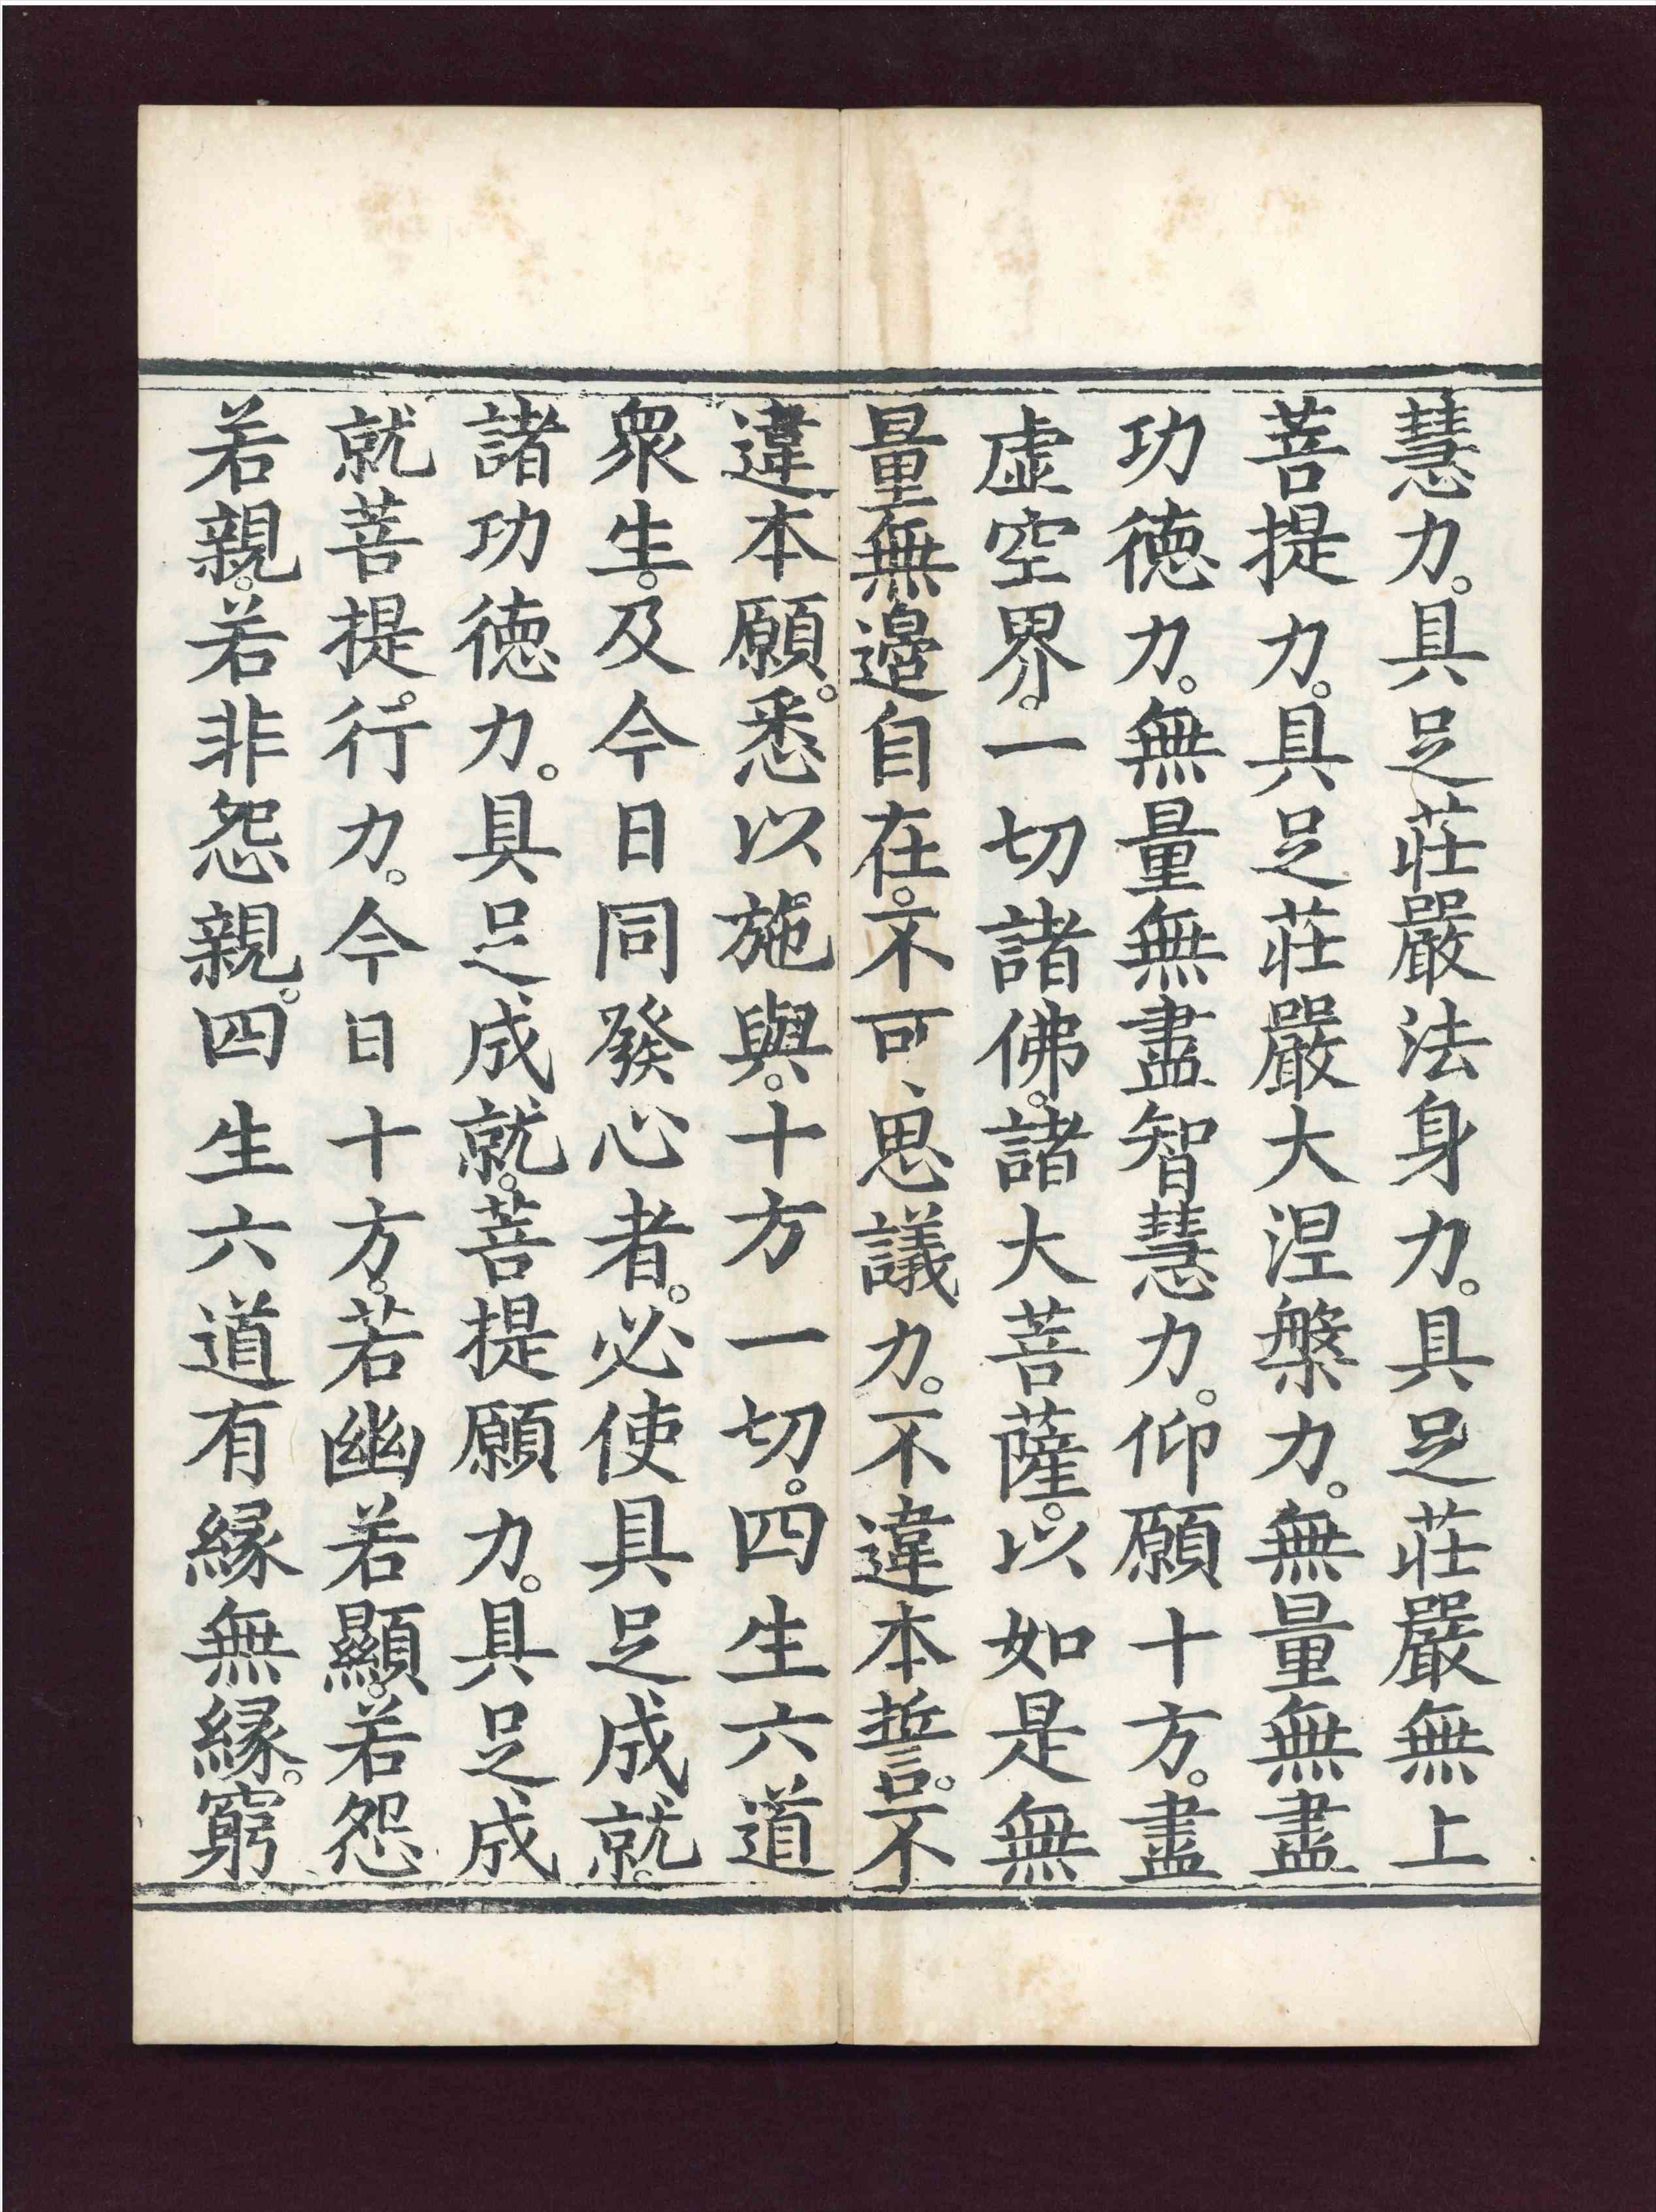 慧力。具足莊嚴法身力。具足莊嚴無上
菩提力。具足莊嚴大涅槃力。無量無盡
功徳力。無量無盡智慧力。仰願十方。盡
虛空界。一切諸佛。諸大菩薩。以如是無
量無邊自在。不可思議力。不違本誓。不
違本願。悉以施與。十方一切。四生六道
衆生。及今日同發心者。必使具足成就。
諸功徳力。具足成就。菩提願力。具足成
就菩提。行力。今日十方。若幽若顯。若怨
若親。若非怨親。四生六道有緣無緣。窮